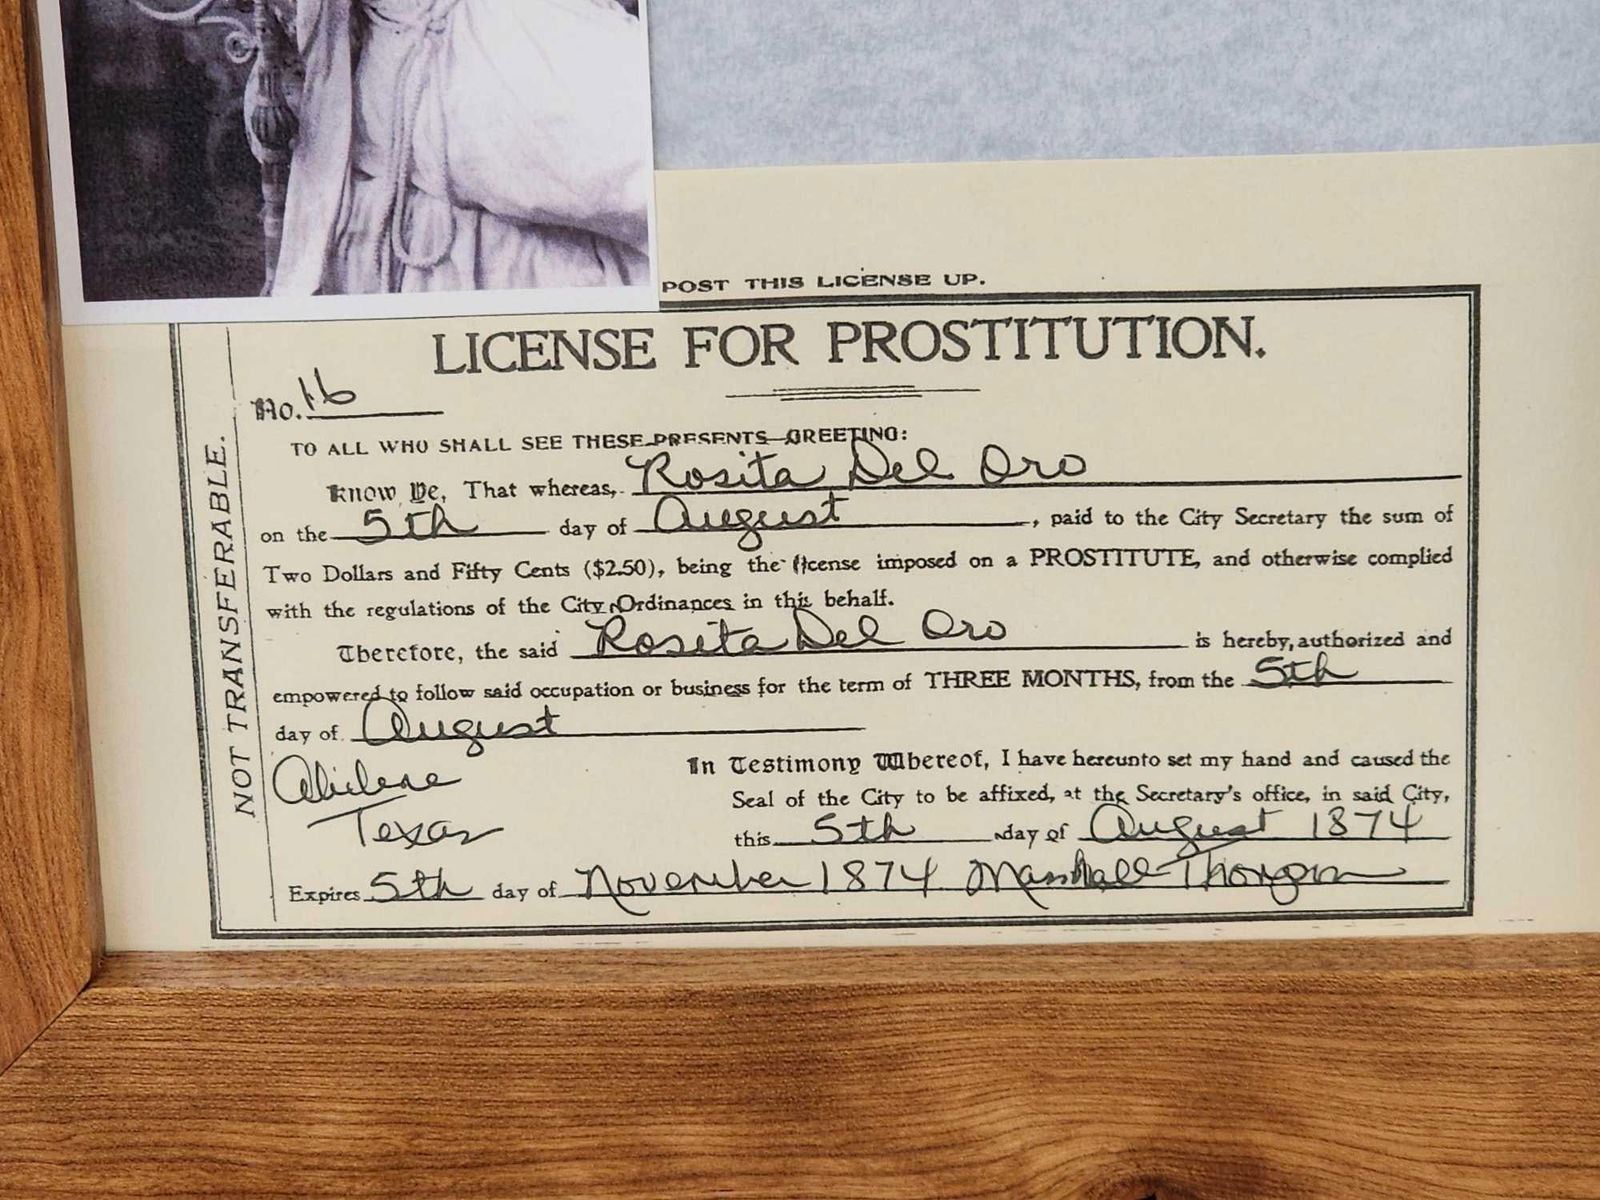 POST THIS LICENSE UP.
LICENSE FOR PROSTITUTION.
No. 16
TO ALL WHO SHALL SEE THESE PRESENTS GREETING:
Know Ye, That whereas, Rosita Del Oro
on the 5th day of August, paid to the City Secretary the sum of
Two Dollars and Fifty Cents ($2.50), being the license imposed on a PROSTITUTE, and otherwise complied
with the regulations of the City Ordinances in this behalf.
Therefore, the said Rosita Del Oro is hereby, authorized and
empowered to follow said occupation or business for the term of THREE MONTHS, from the 5th
day of August
Abilene
Texas
In Testimony Whereof, I have hereunto set my hand and caused the
Seal of the City to be affixed, at the Secretary's office, in said City,
this 5th day of August 1874
Expires 5th day of November 1874 Marshall
NOT TRANSFERABLE.